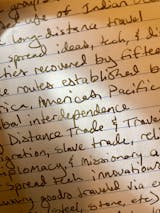 of Indian
long-distance travel
spread ideas, tech, & di
ties recovered by fifte
e routes established b
rica, Americas, Pacific
bal interdependence
Distance Trade & Trave
igration, slave trade, rel
plomacy & missionary a
spread tech innovation
uxury goods traveled via
steel, stone, etc.)